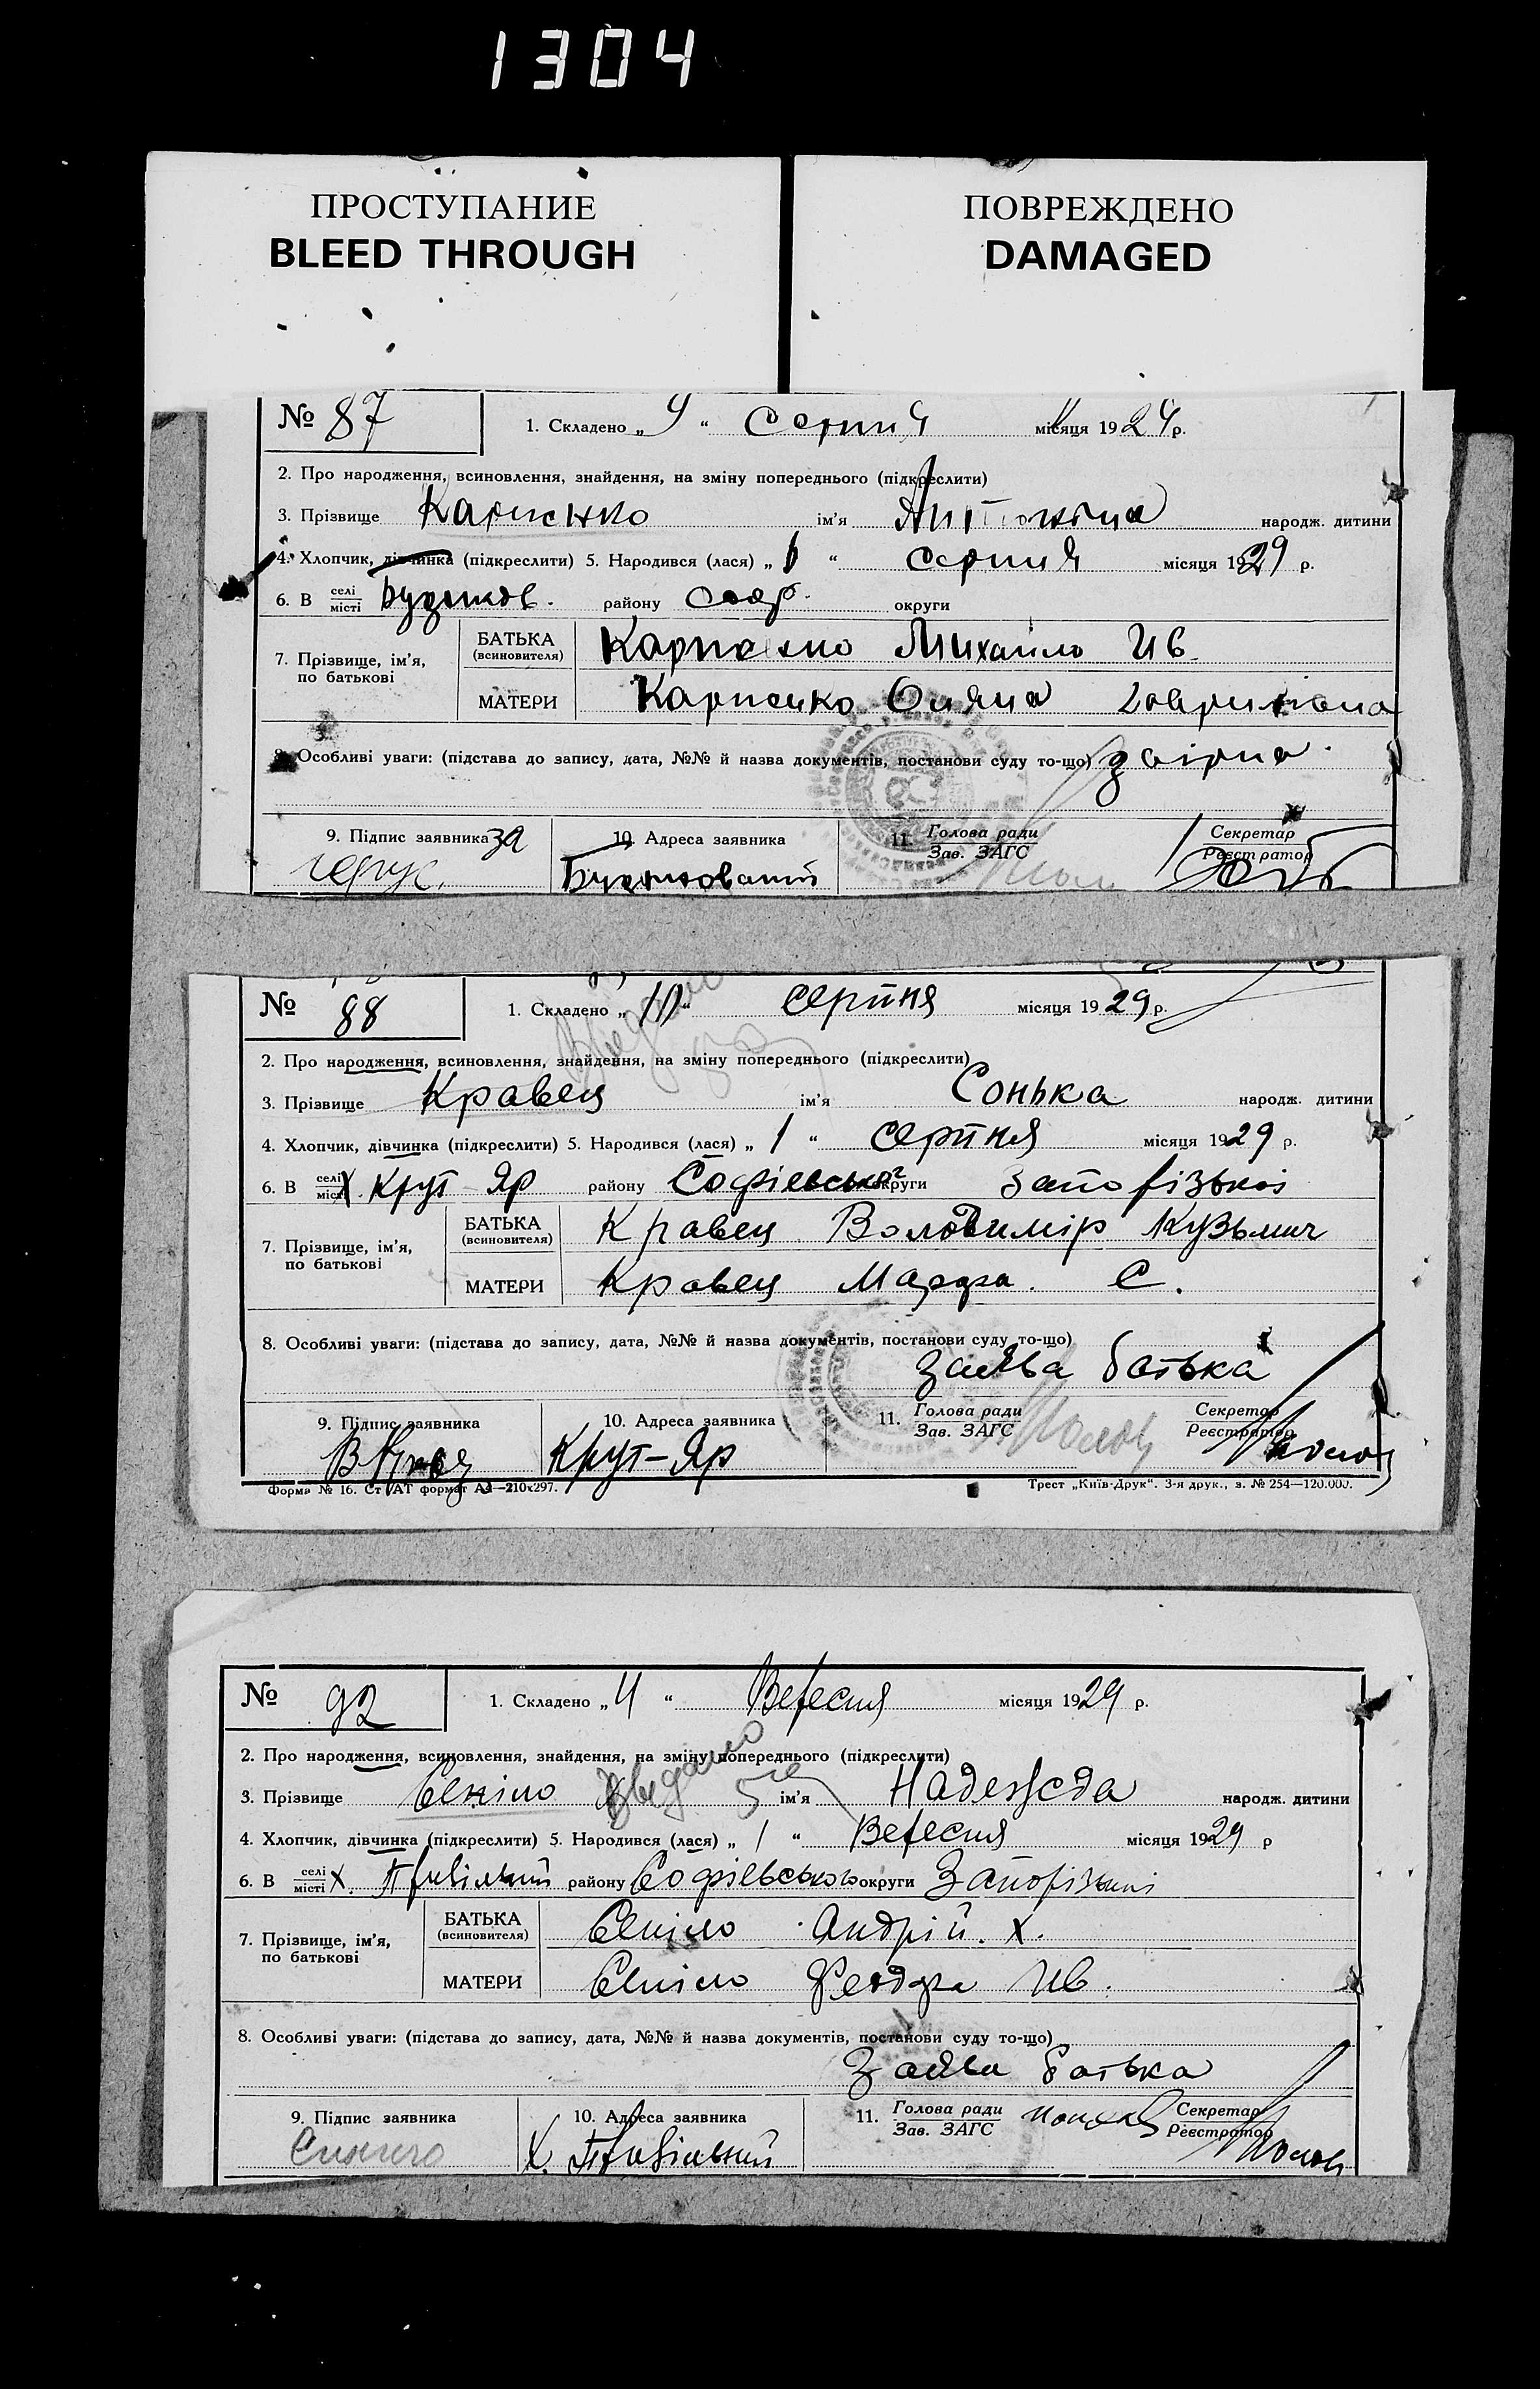 1304
ПРОСТУПАНИЕ
BLEED THROUGH
ПОВРЕЖДЕНО
DAMAGED
№ 87 1. Складено „ 9 “ Серпня місяця 1929 р.
2. Про народження, всиновлення, знайдення, на зміну попереднього (підкреслити)
3. Прізвище Карпенко ім'я Антоніна народж. дитини
4. Хлопчик, дівчинка (підкреслити) 5. Народився (лася) „ 1 “ серпня місяця 1929 р.
6. В селі/місті району Соф. округи
7. Прізвище, ім'я, по батькові
БАТЬКА (всиновителя) Карпенко Михайло Ив
МАТЕРИ Карпенко Оляна
8. Особливі уваги: (підстава до запису, дата, №№ й назва документів, постанови суду то-що)
9. Підпис заявника за
10. Адреса заявника
11. Голова ради/Зав. ЗАГС
Секретар/Реєстратор
№ 88 1. Складено „ 10 “ серпня місяця 1929 р.
2. Про народження, всиновлення, знайдення, на зміну попереднього (підкреслити)
3. Прізвище Кравец ім'я Сонька народж. дитини
4. Хлопчик, дівчинка (підкреслити) 5. Народився (лася) „ 1 “ серпня місяця 1929 р.
6. В селі/місті Х. Крут Яр району Софіевськог округи Запорізької
7. Прізвище, ім'я, по батькові
БАТЬКА (всиновителя) Кравец Володимір Кузьмич
МАТЕРИ Кравец Марфа. С.
8. Особливі уваги: (підстава до запису, дата, №№ й назва документів, постанови суду то-що)
Заява батька
9. Підпис заявника
10. Адреса заявника Крут-Яр
11. Голова ради/Зав. ЗАГС
Секретар/Реєстратор
Форма № 16. Ст АТ формат А4—210х297.
Трест „Київ-Друк“. 3-я друк., з. № 254—120.000.
№ 92 1. Складено „ 4 “ Вересня місяця 1929 р.
2. Про народження, всиновлення, знайдення, на зміну попереднього (підкреслити)
3. Прізвище ім'я Надежда народж. дитини
4. Хлопчик, дівчинка (підкреслити) 5. Народився (лася) „ 1 “ Вересня місяця 1929 р
6. В селі/місті Х. Привільний району Софіевського округи Запорізької
7. Прізвище, ім'я, по батькові
БАТЬКА (всиновителя) Андрій. Х.
МАТЕРИ Ив.
8. Особливі уваги: (підстава до запису, дата, №№ й назва документів, постанови суду то-що)
Заява батька
9. Підпис заявника
10. Адреса заявника Х. Привільний
11. Голова ради/Зав. ЗАГС
Секретар/Реєстратор